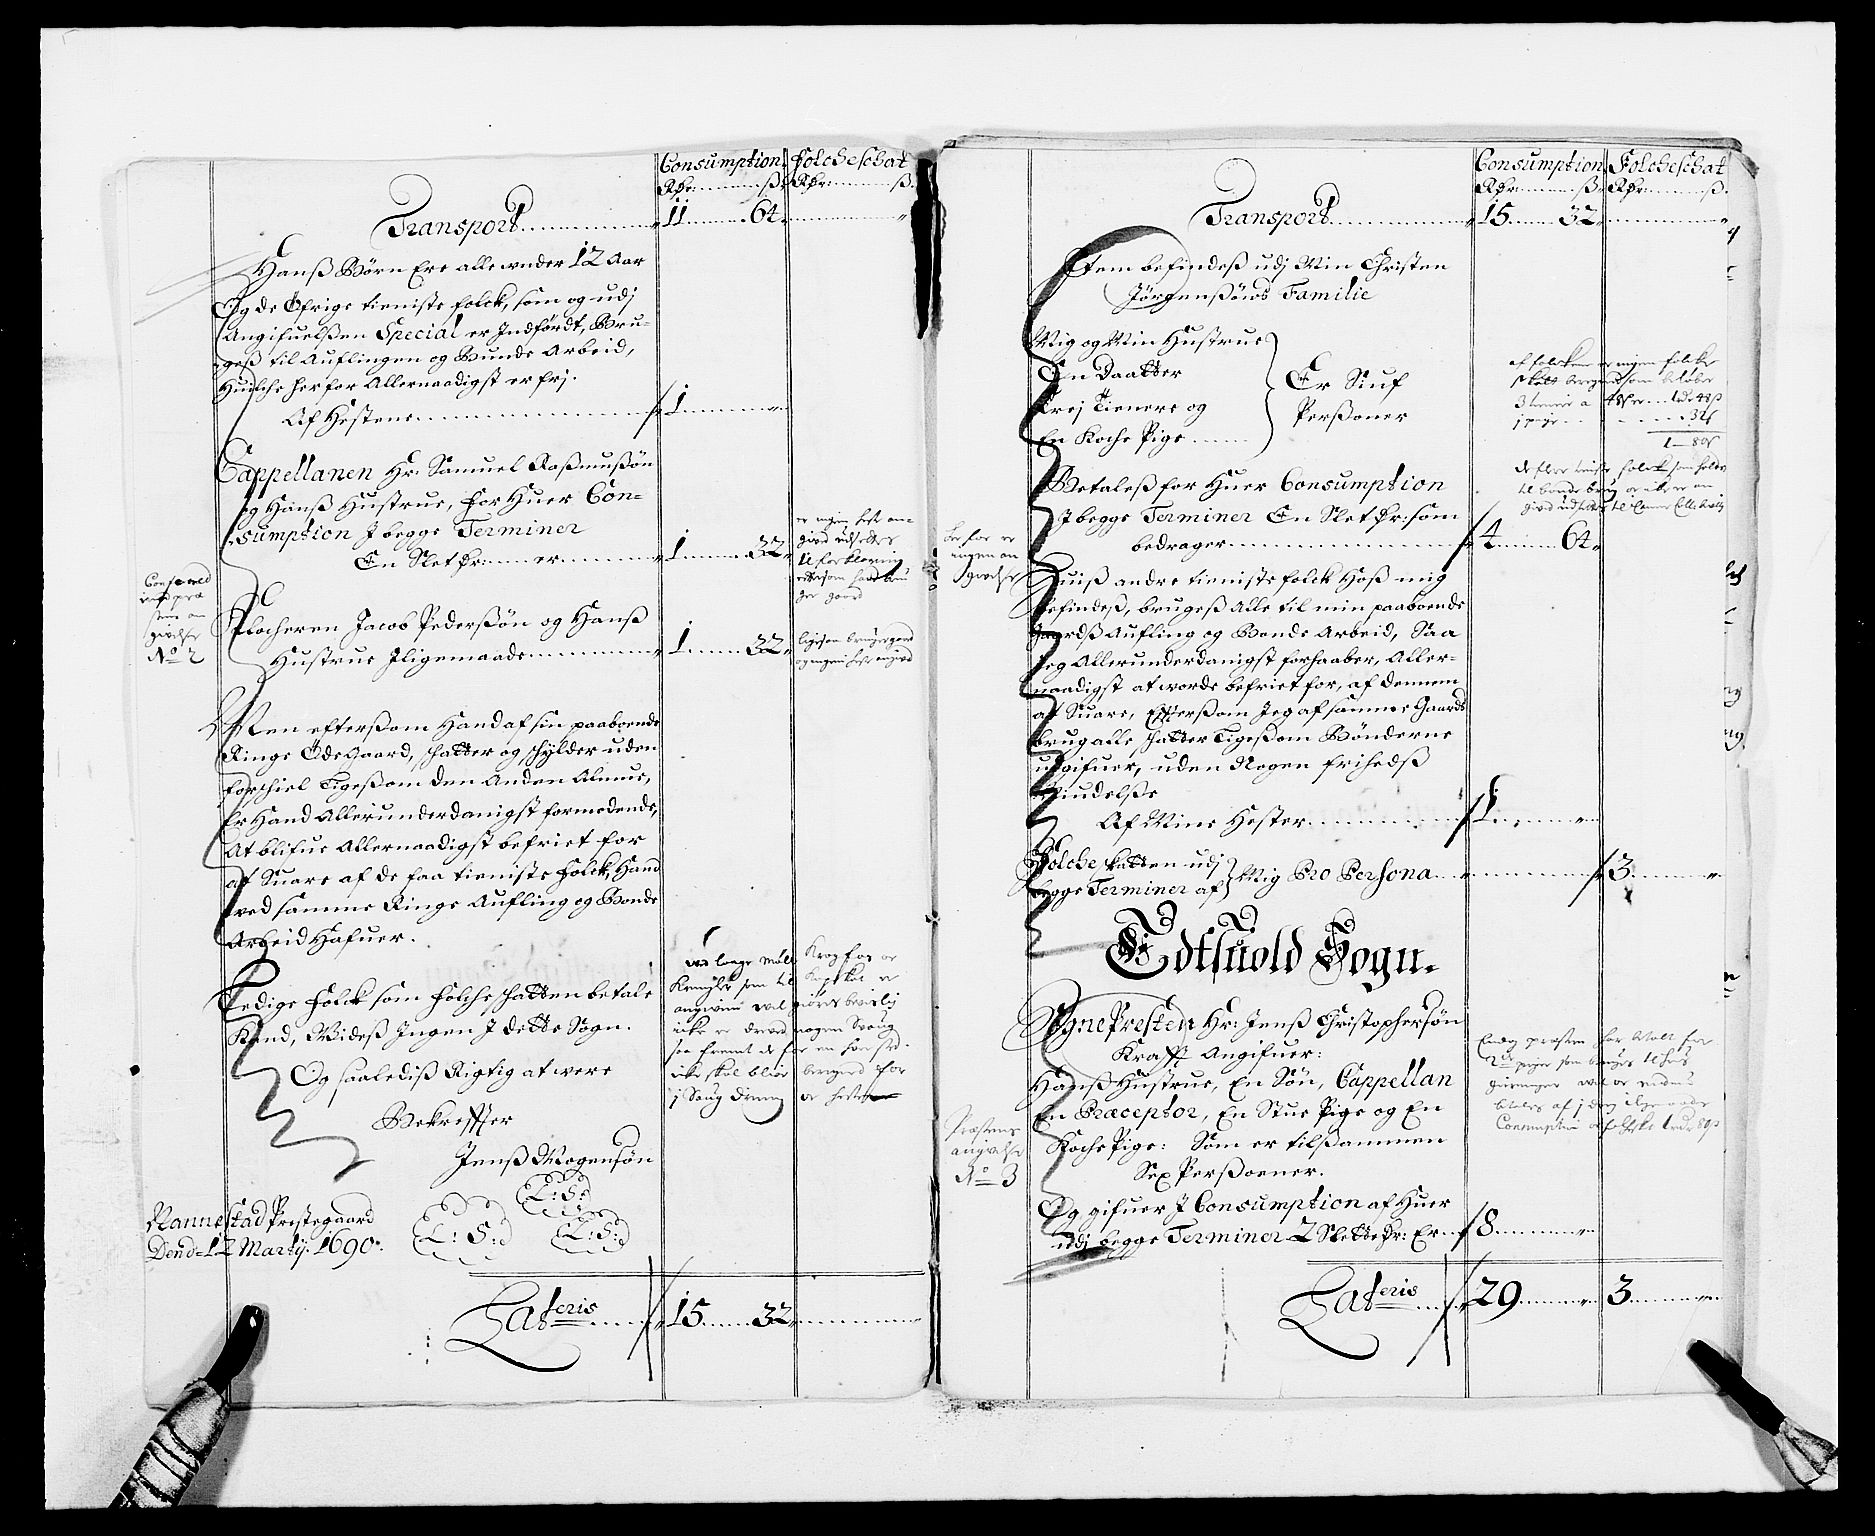 Consumption Folcheschat
Rdr: ß Rdr: ß.
Transport 11 64
Hanß Börn Ere alle under 12 Aar
Og de Öfrige tieniste folck, som og udj
Angifuelßen Special er Indfördt, Bru-
geß til Auflingen og Bunde Arbeid,
Huilche herfor Allernaadigst er frj.
Af Hestene 1
Cappellanen Hr: Samuel Raßmußön
og Hanß Hustrue, for Huer Con-
sumption J begge Terminer
En Slet dr: er 1 32
er ingen heste an-
givd
No 2
Klocheren Jacob Pederßön og Hanß
Hustrue Iligemaade 1 32
Men efterßom Hand af sin paaboende
Ringe Ödegaard, schatter og schylder uden
forschiel ligeßom den Anden Almue,
Er Hand Allerunderdanigst formodende,
At blifue Allernaadigst befriet for
at Suare af de faa tieniste folck, Hand
ved samme Ringe Aufling og Bonde
Arbeid Hafuer.
Ledige folck som folcheschatten betale
Kand, Videß Ingen J dette Sogn.
Og saaledis Rigtig at were
Bekreffter
Jenß Mogensön
L: S:
L: S: L: S:
Rannestad Prestegaard
Dend 12 Martij: 1690.
Lateris 15 32
Consumption Folcheschat
Rdr: ß Rdr: ß.
Transport 15 32
Item befindeß udj Min Christen
Jörgenßöns Familie
Mig og Min Hustrue
En Daatter
Trej Tienere og
En Koche Pige
Er Siuf
Perßoner
Betaleß for Huer Consumption
J begge Terminer En Slet dr: som
bedrager 4 64
Her for er
ingen an
givelse
Huiß andre tieniste folck Hoß mig
befindeß, brugeß Alle til min paaboende
Gaardß Aufling og Bonde Arbeid, Saa
Jeg Allerunderdanigst forhaaber, Aller-
naadigst at worde befriet for, af dennem
at Suare, Efterßom Jeg af samme Gaards
brug alle schatter ligeßom Bönderne
udgifuer, uden Nogen frihedß
Niudelße
Af Mine Hester 1
Folcheskatten udj
begge Terminer af Mig Pro Persona 3
Edtsuold Sogn.
SognePresten Hr: Jenß Christophersön
Krafft Angifuer:
Hanß Hustrue, En Sön, Cappellan
En Præceptor, En Stue Pige og En
Koche Pige: Som er tilßammen
Sex Perßoener.
Præstens
angivelse
No 3
Og gifuer J Consumption af Huer
udj begge Terminer 2 Slette dr: Er 8
Lateris 29 3